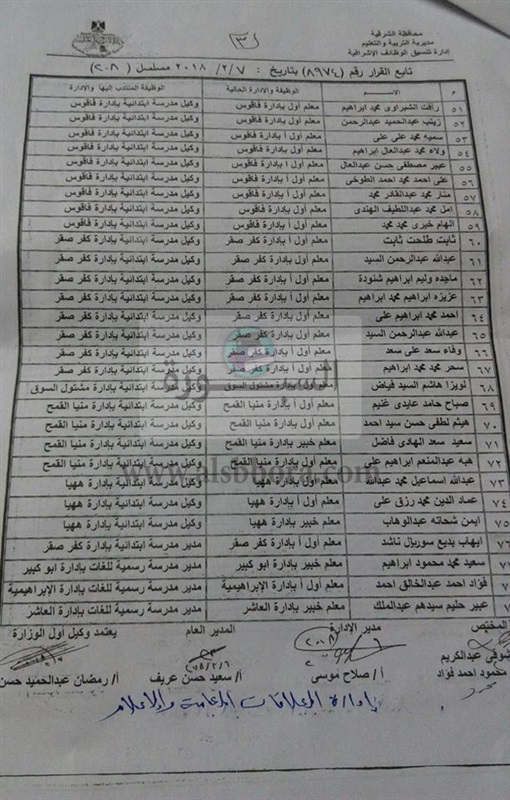 محافظة الشرقية
مديرية التربية والتعليم
إدارة تنسيق الوظائف الإشرافية
(٣)
تابع القرار رقم (٨٩٧٤) بتاريخ : ٢٠١٨/٢/٧ مسلسل (٢٠٨)
م الاسم الوظيفة والإدارة الحالية الوظيفة المنتدب إليها والإدارة
٥١ رأفت الشبراوى محمد ابراهيم معلم أول بإدارة فاقوس وكيل مدرسة ابتدائية بإدارة فاقوس
٥٢ زينب عبدالحميد عبدالرحمن معلم أول بإدارة فاقوس وكيل مدرسة ابتدائية بإدارة فاقوس
٥٣ سميه محمد على على معلم أول أ بإدارة فاقوس وكيل مدرسة ابتدائية بإدارة فاقوس
٥٤ ولاء محمد عبدالعال ابراهيم معلم أول أ بإدارة فاقوس وكيل مدرسة ابتدائية بإدارة فاقوس
٥٥ عبير مصطفى حسن عبدالعال معلم أول أ بإدارة فاقوس وكيل مدرسة ابتدائية بإدارة فاقوس
٥٦ على احمد محمد احمد الطوخى معلم أول أ بإدارة فاقوس وكيل مدرسة ابتدائية بإدارة فاقوس
٥٧ منار محمد عبدالقادر محمد معلم أول أ بإدارة فاقوس وكيل مدرسة ابتدائية بإدارة فاقوس
٥٨ امل محمد عبداللطيف الهندى معلم أول أ بإدارة فاقوس وكيل مدرسة ابتدائية بإدارة فاقوس
٥٩ الهام خيرى محمد محمد معلم أول أ بإدارة فاقوس وكيل مدرسة ابتدائية بإدارة فاقوس
٦٠ ثابت طلحت ثابت معلم أول أ بإدارة كفر صقر وكيل مدرسة ابتدائية بإدارة كفر صقر
٦١ عبدالله عبدالرحمن السيد معلم أول أ بإدارة كفر صقر وكيل مدرسة ابتدائية بإدارة كفر صقر
٦٢ ماجده وليم ابراهيم شنودة معلم أول أ بإدارة كفر صقر وكيل مدرسة ابتدائية بإدارة كفر صقر
٦٣ عزيزه ابراهيم محمد ابراهيم معلم أول أ بإدارة كفر صقر وكيل مدرسة ابتدائية بإدارة كفر صقر
٦٤ احمد محمد ابراهيم على معلم أول أ بإدارة كفر صقر وكيل مدرسة ابتدائية بإدارة كفر صقر
٦٥ عبدالله عبدالرحمن السيد معلم أول أ بإدارة كفر صقر وكيل مدرسة ابتدائية بإدارة كفر صقر
٦٦ وفاء سعد على سعد معلم أول بإدارة كفر صقر وكيل مدرسة ابتدائية بإدارة كفر صقر
٦٧ سحر محمد محمد ابراهيم معلم أول أ بإدارة كفر صقر وكيل مدرسة ابتدائية بإدارة كفر صقر
٦٨ لويزا هاشم السيد فياض معلم أول بإدارة مشتول السوق وكيل مدرسة ابتدائية بإدارة مشتول السوق
٦٩ صباح حامد عابدى غنيم معلم أول أ بإدارة منيا القمح وكيل مدرسة ابتدائية بإدارة منيا القمح
٧٠ هيثم لطفى حسن سيد احمد معلم أول أ بإدارة منيا القمح وكيل مدرسة ابتدائية بإدارة منيا القمح
٧١ سعيد سعد الهادى فاضل معلم خبير بإدارة منيا القمح وكيل مدرسة ابتدائية بإدارة منيا القمح
٧٢ هبه عبدالمنعم ابراهيم على معلم أول بإدارة منيا القمح وكيل مدرسة ابتدائية بإدارة منيا القمح
٧٣ عبدالله اسماعيل محمد عبدالله معلم أول بإدارة ههيا وكيل مدرسة ابتدائية بإدارة ههيا
٧٤ عماد الدين محمد رزق على معلم أول أ بإدارة ههيا وكيل مدرسة ابتدائية بإدارة ههيا
٧٥ ايمن شحاته عبدالوهاب معلم خبير بإدارة ههيا وكيل مدرسة ابتدائية بإدارة ههيا
٧٦ ايهاب بديع سوريال ناشد معلم أول أ بإدارة كفر صقر مدير مدرسة ابتدائية بإدارة كفر صقر
سعيد محمد محمود ابراهيم معلم خبير بإدارة ابو كبير مدير مدرسة رسمية للغات بإدارة ابو كبير
فؤاد احمد عبدالخالق احمد معلم أول أ بإدارة الإبراهيمية مدير مدرسة رسمية للغات بإدارة الإبراهيمية
عبير حليم سيدهم عبدالملك معلم خبير بإدارة العاشر مدير مدرسة رسمية لغات بإدارة العاشر
www.alsbbora.com
المختص مدير الإدارة المدير العام يعتمد وكيل أول الوزارة
شوقى عبدالكريم
محمود احمد فؤاد أ/ صلاح موسى أ/ سعيد حسن عريف أ/ رمضان عبدالحميد حسن
إدارة العلاقات العامة والإعلام